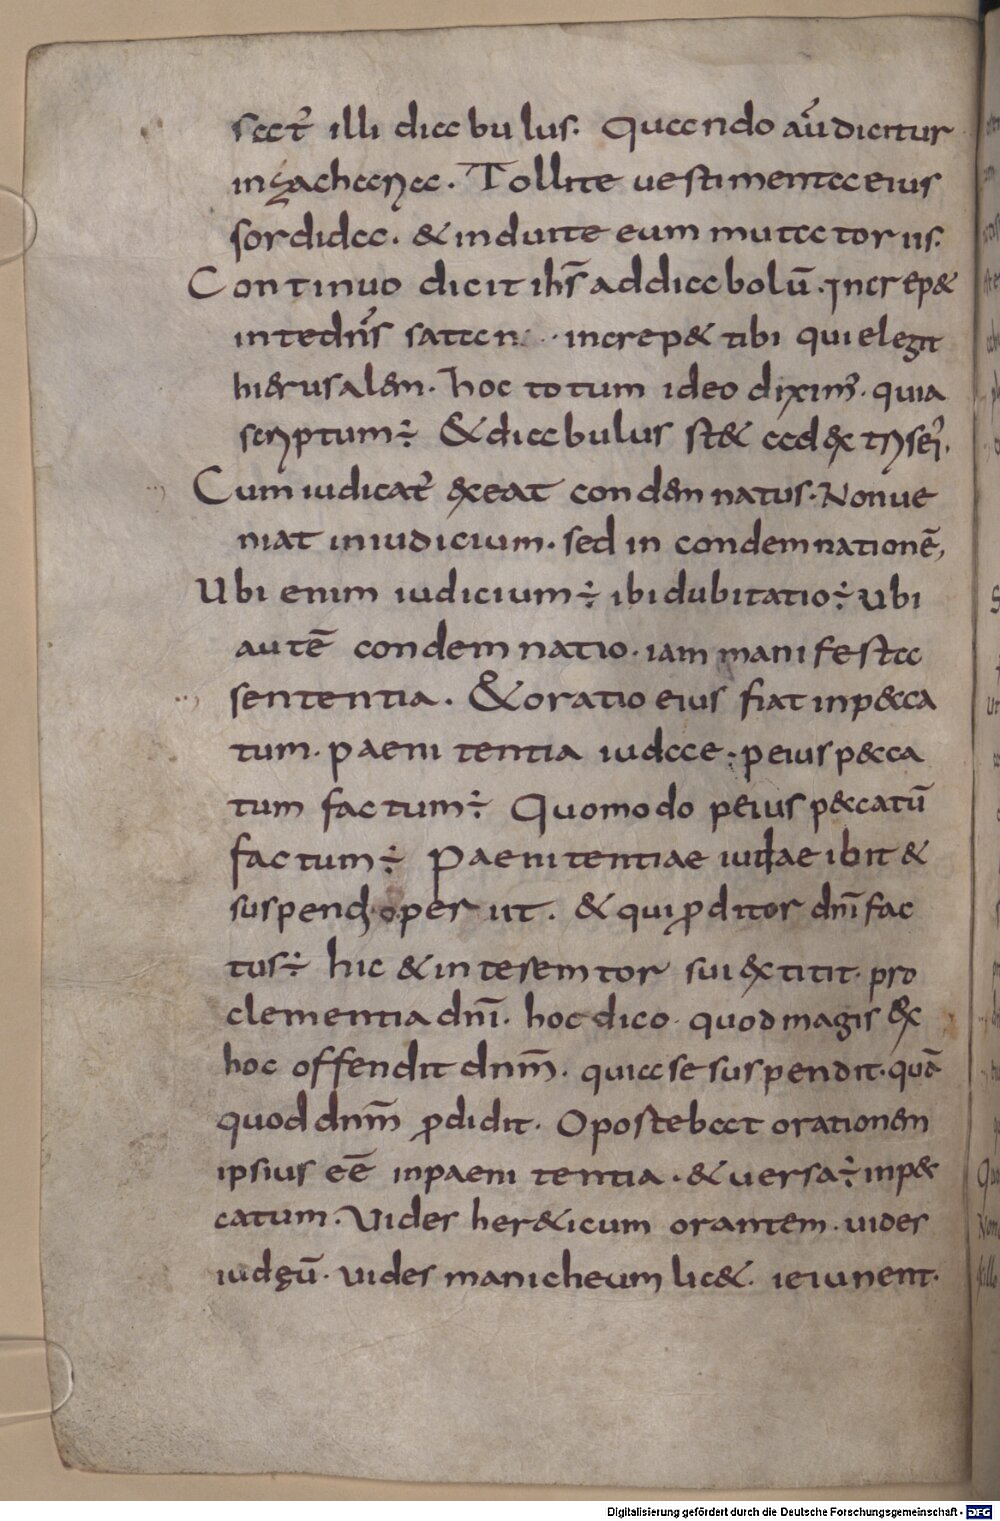 satur illi diabulus. Quando audicitur
in zacharia. Tollite uestimenta eius
sordida. & induite eum mutatoriis.
Continuo dicit ihs̄ ad diabolū. Increp&
in te dn̄s satan. increp& tibi qui elegit
hierusalem. hoc totum ideo diximꝰ. quia
scriptum÷ & diabulus st& ad extris ei.
Cum iudicat̉ exeat condemnatus. Non ue
niat in iudicium. sed in condemnationē,
Ubi enim iudicium÷ ibi dubitatio÷ Ubi
autē condemnatio. iam manifesta
sententia. & oratio eius fiat in p&ca
tum. paenitentia iudae. peius p&ca
tum factum÷ Quomodo peius p&catū
factum÷ Paenitentiae iudae ibit &
suspendio periit. & qui ꝓditor dn̄i fac
tus÷ hic & interemtor sui extitit. pro
clementia dn̄i. hoc dico quod magis ex
hoc offendit dn̄m. quia se suspendit. quā
quod dn̄m ꝓdidit. Oportebat orationem
ipsius eē in paenitentia. & uersa÷ in p&
catum. Uides her&icum orantem. uides
iudęū. uides manicheum lic&. ieiunent.
Digitalisierung gefördert durch die Deutsche Forschungsgemeinschaft - DFG